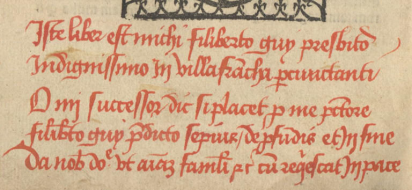 Iste liber est michi filiberto guy presbitō
Indignissimo In villafrāchā ꝑcunctanti
O mi successor dic si placet ꝑ me pctore
filibto guy pdicto sepius / de pfūdis et In fine
Da nob doe vt aiaȝ famli ⁊c cū reqescat In pace